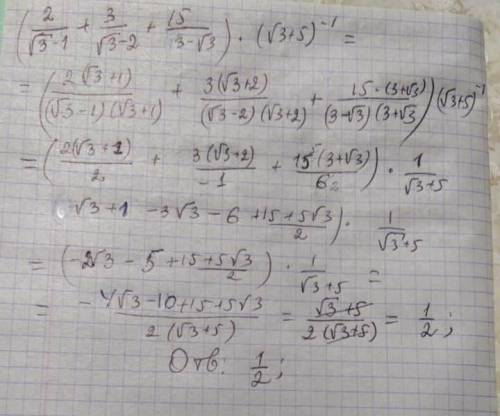 (2/(√3-1) + 3/(√3-2) + 15/(3-√3)) · (√3+5)^-1 =
= (2√3+1)/((√3-1)(√3+1)) + 3(√3+2)/((√3-2)(√3+2)) + 15·(3+√3)/((3-√3)(3+√3)) (√3+5)^-1
= (2(√3+1)/2 + 3(√3+2)/-1 + 15(3+√3)/6 2) · 1/(√3+5)
√3+1 -3√3-6 + (15+5√3)/2) · 1/(√3+5)
= (-2√3 - 5 + (15+5√3)/2) · 1/(√3+5) =
= (-4√3-10+15+5√3)/(2(√3+5)) = (√3+5)/(2(√3+5)) = 1/2;
Отв: 1/2;